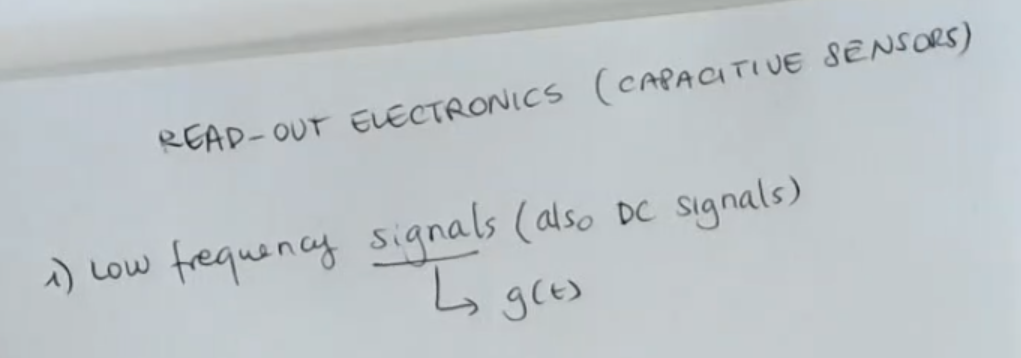 READ-OUT ELECTRONICS (CAPACITIVE SENSORS)
1) Low frequency signals (also DC signals)
↳ g(t)